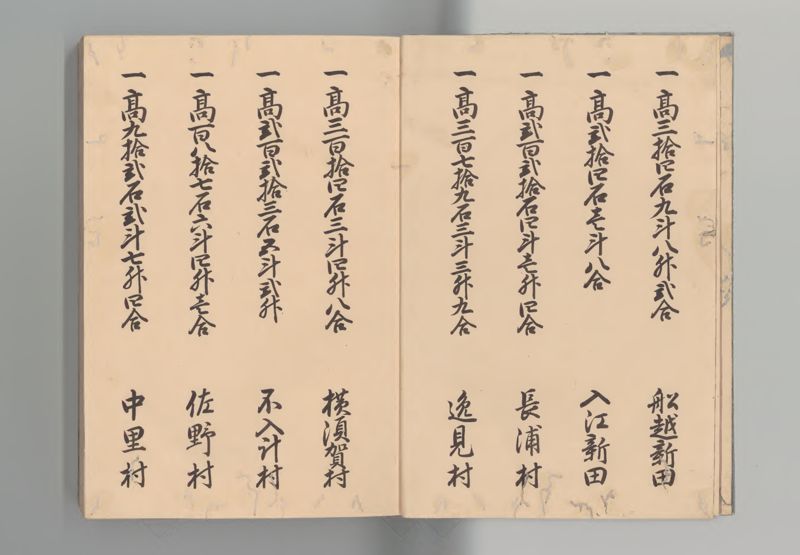 一高三拾四石九斗八升弐合 船越新田
一高弐拾四石壱斗八合 入江新田
一高弐百弐拾石四斗壱升四合 長浦村
一高三百七拾九石三斗三升九合 逸見村
一高三百拾四石三斗四升八合 横須賀村
一高弐百弐拾三石五斗弐升 不入計村
一高百八拾七石六斗四升壱合 佐野村
一高九拾弐石弐斗七升四合 中里村